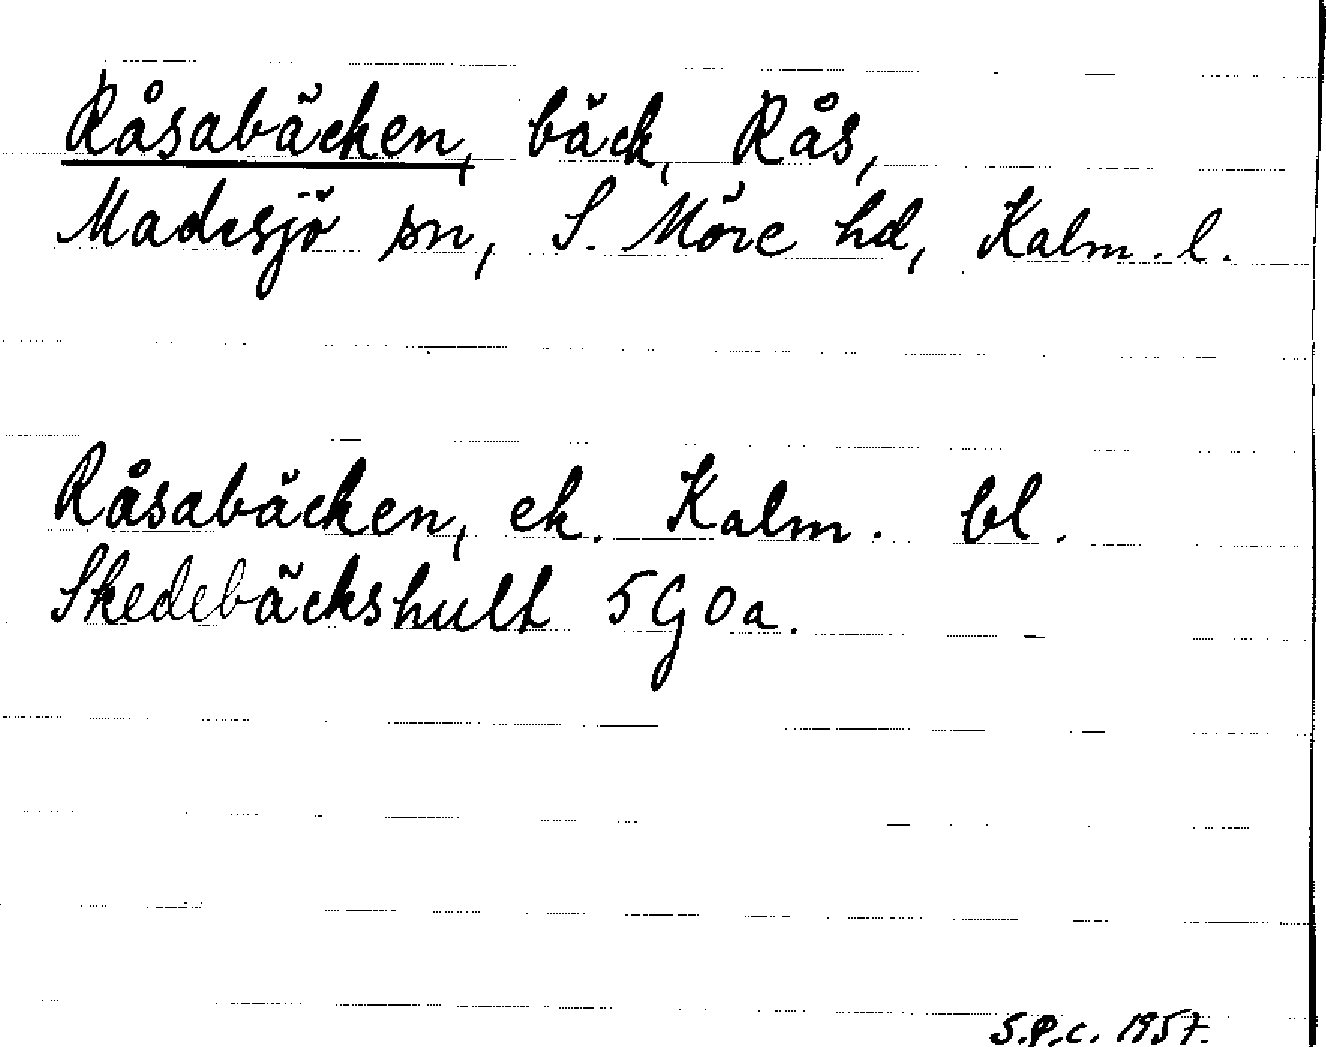 Råsabäcken, bäck, Rås,
Madesjö sn, S. Möre hd, Kalm. l.
Råsabäcken, ek. Kalm. bl.
Skedebäckshult 5G0a.
S.P.C. 1957.